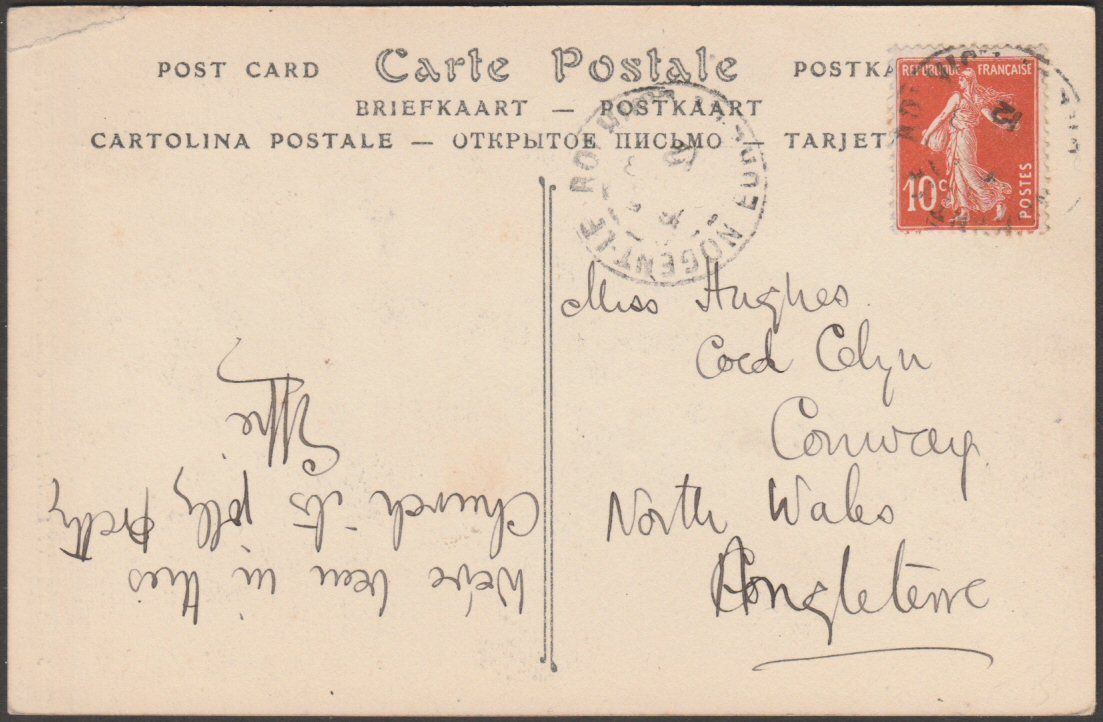 POST CARD Carte Postale POSTKA
BRIEFKAART — POSTKAART
CARTOLINA POSTALE — ОТКРЫТОЕ ПИСЬМО — TARJET
REPUBLIQUE FRANÇAISE
10c
POSTES
12
NOGENT-LE-ROTROU EURE
Miss Hughes
Coed Celyn
Conway
North Wales
Angleterre
We've been in this
Church its jolly pretty
Effie